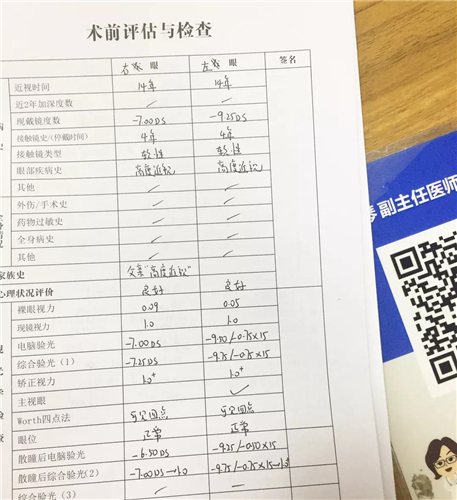 术前评估与检查
右 眼 左 眼 签名
近视时间 14年 14年
近2年加深度数 / /
现戴镜度数 -7.00DS -9.25DS
接触镜史/(停戴时间) 4年 4年
接触镜类型 软性 软性
眼部疾病史 高度近视 高度近视
其他 / /
外伤/手术史 / /
药物过敏史 / /
全身病史 / /
其他 / /
家族史 父亲"高度近视"
心理状况评价 良好 良好
裸眼视力 0.09 0.05
现镜视力 1.0 1.0
电脑验光 -7.00DS -9.50/-0.75×15
综合验光(1) -7.25DS -9.75/-0.75×15
矫正视力 1.0⁺ 1.0⁺
主视眼 ✓
Worth四点法 可见四点 可见四点
眼位 正常 正常
散瞳后电脑验光 -6.50DS -9.25/-0.50×15
散瞳后综合验光(2) -7.00DS→1.0 -9.75/-0.75×15→1.0
综合验光(3) / /
副主任医师